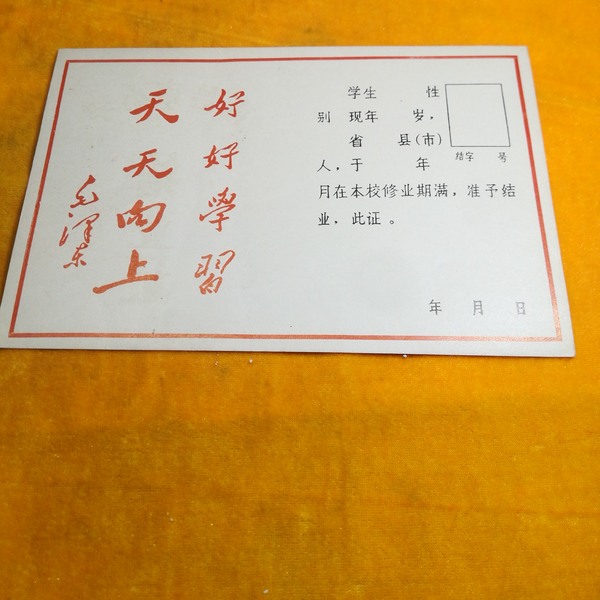 好好學習
天天向上
毛泽东
学生 性
别 现年 岁，
省 县(市)
人，于 年
月在本校修业期满，准予结
业，此证。
结字 号
年 月 日